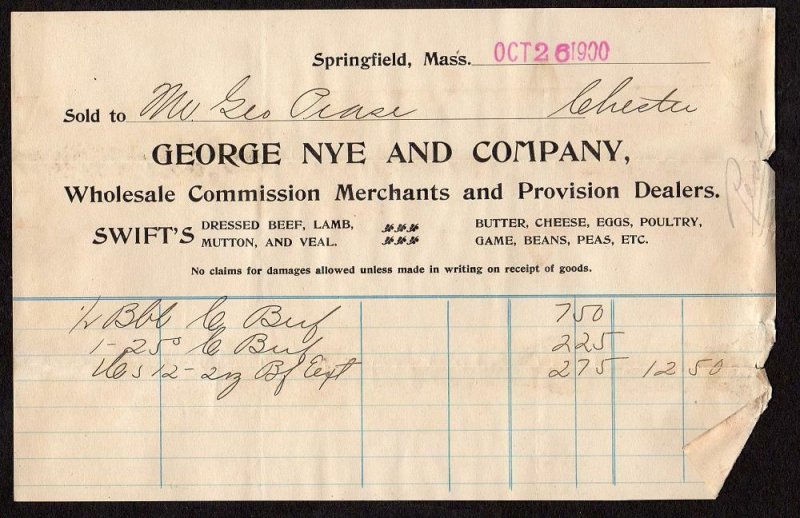 Springfield, Mass. OCT 26 1900
Sold to Mr. Geo Pease Chester
GEORGE NYE AND COMPANY,
Wholesale Commission Merchants and Provision Dealers.
SWIFT'S DRESSED BEEF, LAMB, MUTTON, AND VEAL. BUTTER, CHEESE, EGGS, POULTRY, GAME, BEANS, PEAS, ETC.
No claims for damages allowed unless made in writing on receipt of goods.
1/2 Bbl C Beef 750
1-25# C Beef 225
12-2oz Bf Ext 275 12 50